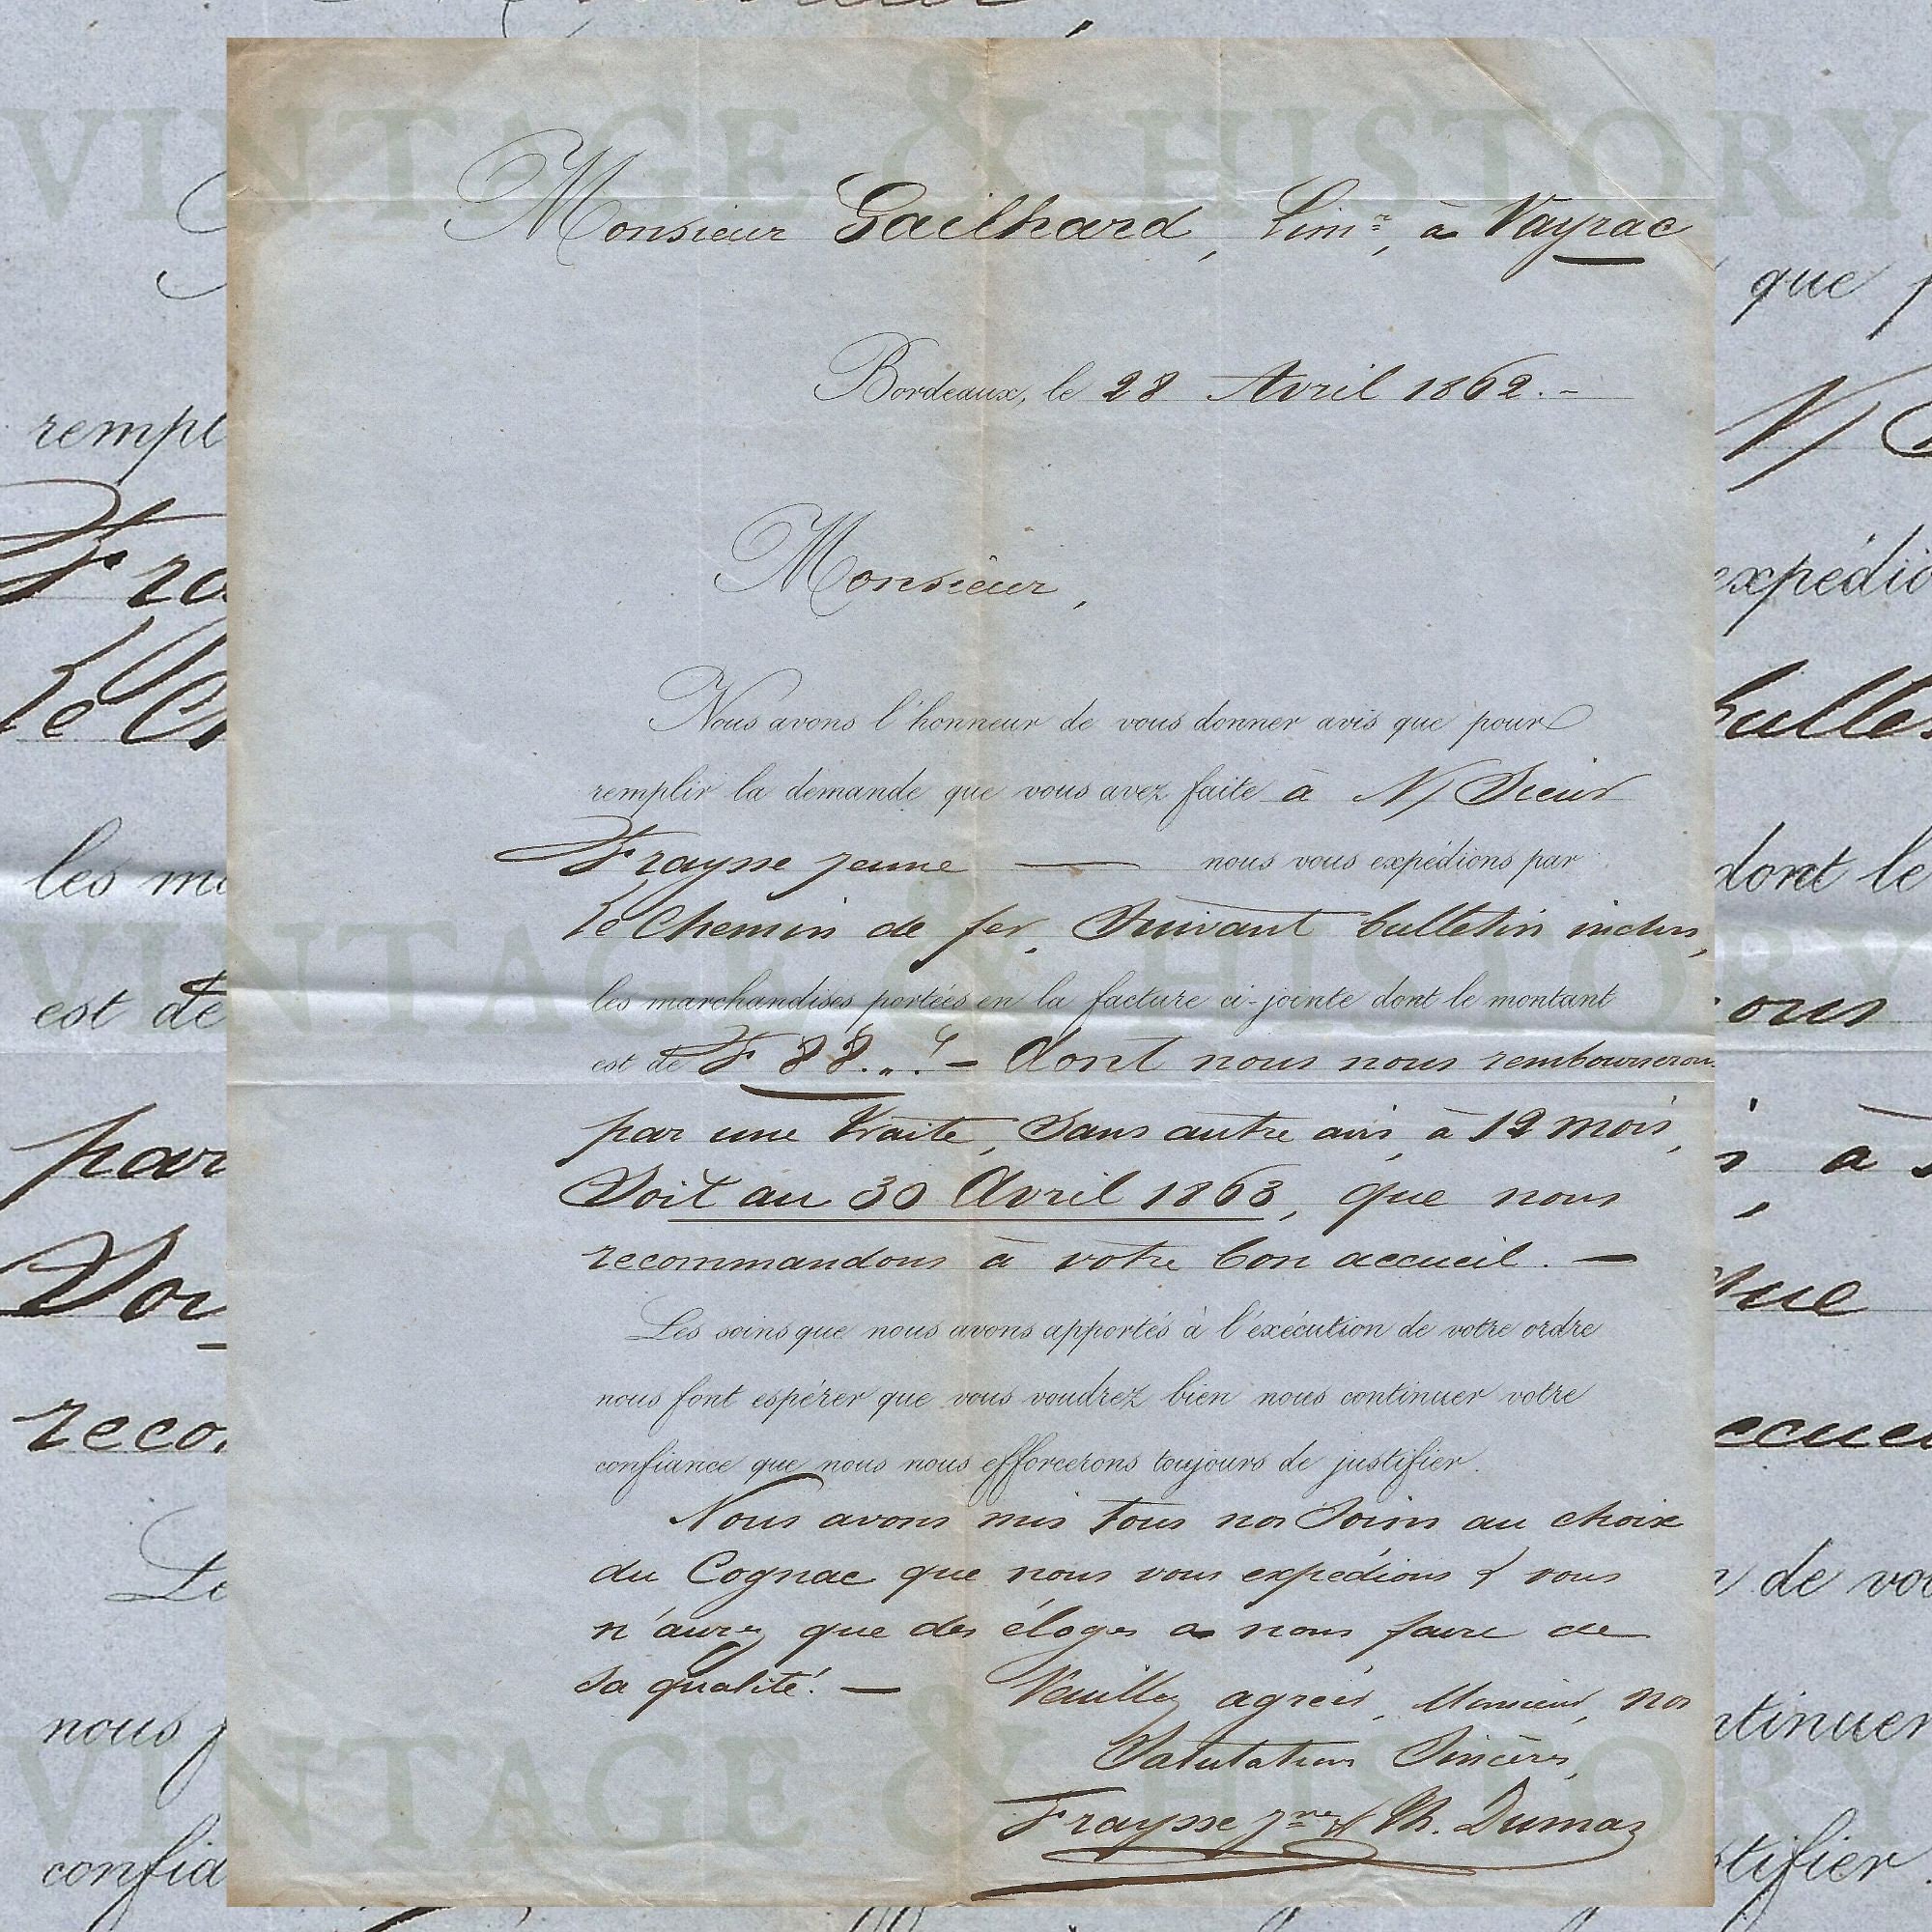 Monsieur Gailhard, Lim.r, à Vayrac
Bordeaux, le 28 Avril 1862.-
Monsieur,
Nous avons l'honneur de vous donner avis que pour
remplir la demande que vous avez faite à N/ Sieur
Fraysse jeune — nous vous expédions par
le Chemin de fer, Suivant bulletin inclus,
les marchandises portées en la facture ci-jointe dont le montant
est de F 88 - dont nous nous rembourserons
par une traite, Sans autre avis, à 12 mois,
Soit au 30 Avril 1863, que nous
recommandons à votre bon accueil. —
Les soins que nous avons apportés à l'exécution de votre ordre
nous font espérer que vous voudrez bien nous continuer votre
confiance que nous nous efforcerons toujours de justifier.
Nous avons mis tous nos Soins au choix
du Cognac que nous vous expédions & vous
n'aurez que des éloges a nous faire de
Sa qualité. —
Veuillez agréer, Monsieur, nos
Salutations Sincères,
Fraysse jne & Th. Dumas
VINTAGE & HISTORY
VINTAGE & HISTORY
VINTAGE & HISTORY